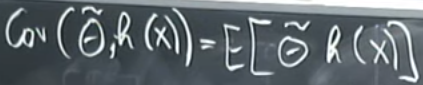 Cov(Θ̃,h(X))=E[Θ̃ h(X)]